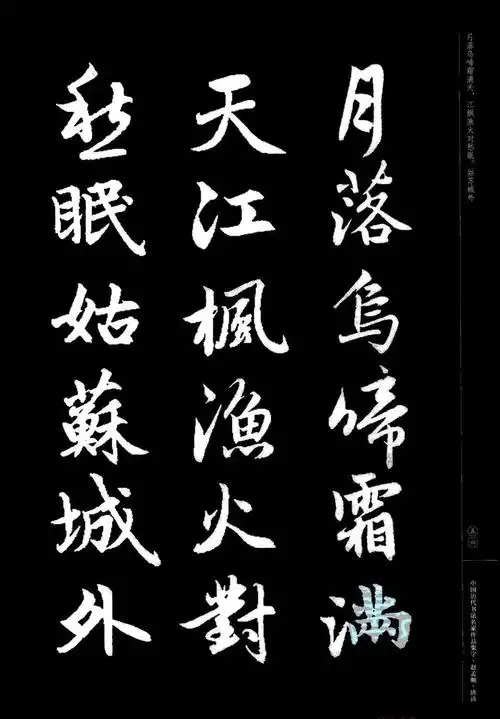 月落烏啼霜滿
天江楓漁火對
愁眠姑蘇城外
月落乌啼霜满天，江枫渔火对愁眠。姑苏城外
五六
中国历代书法名家作品集字·赵孟頫·唐诗